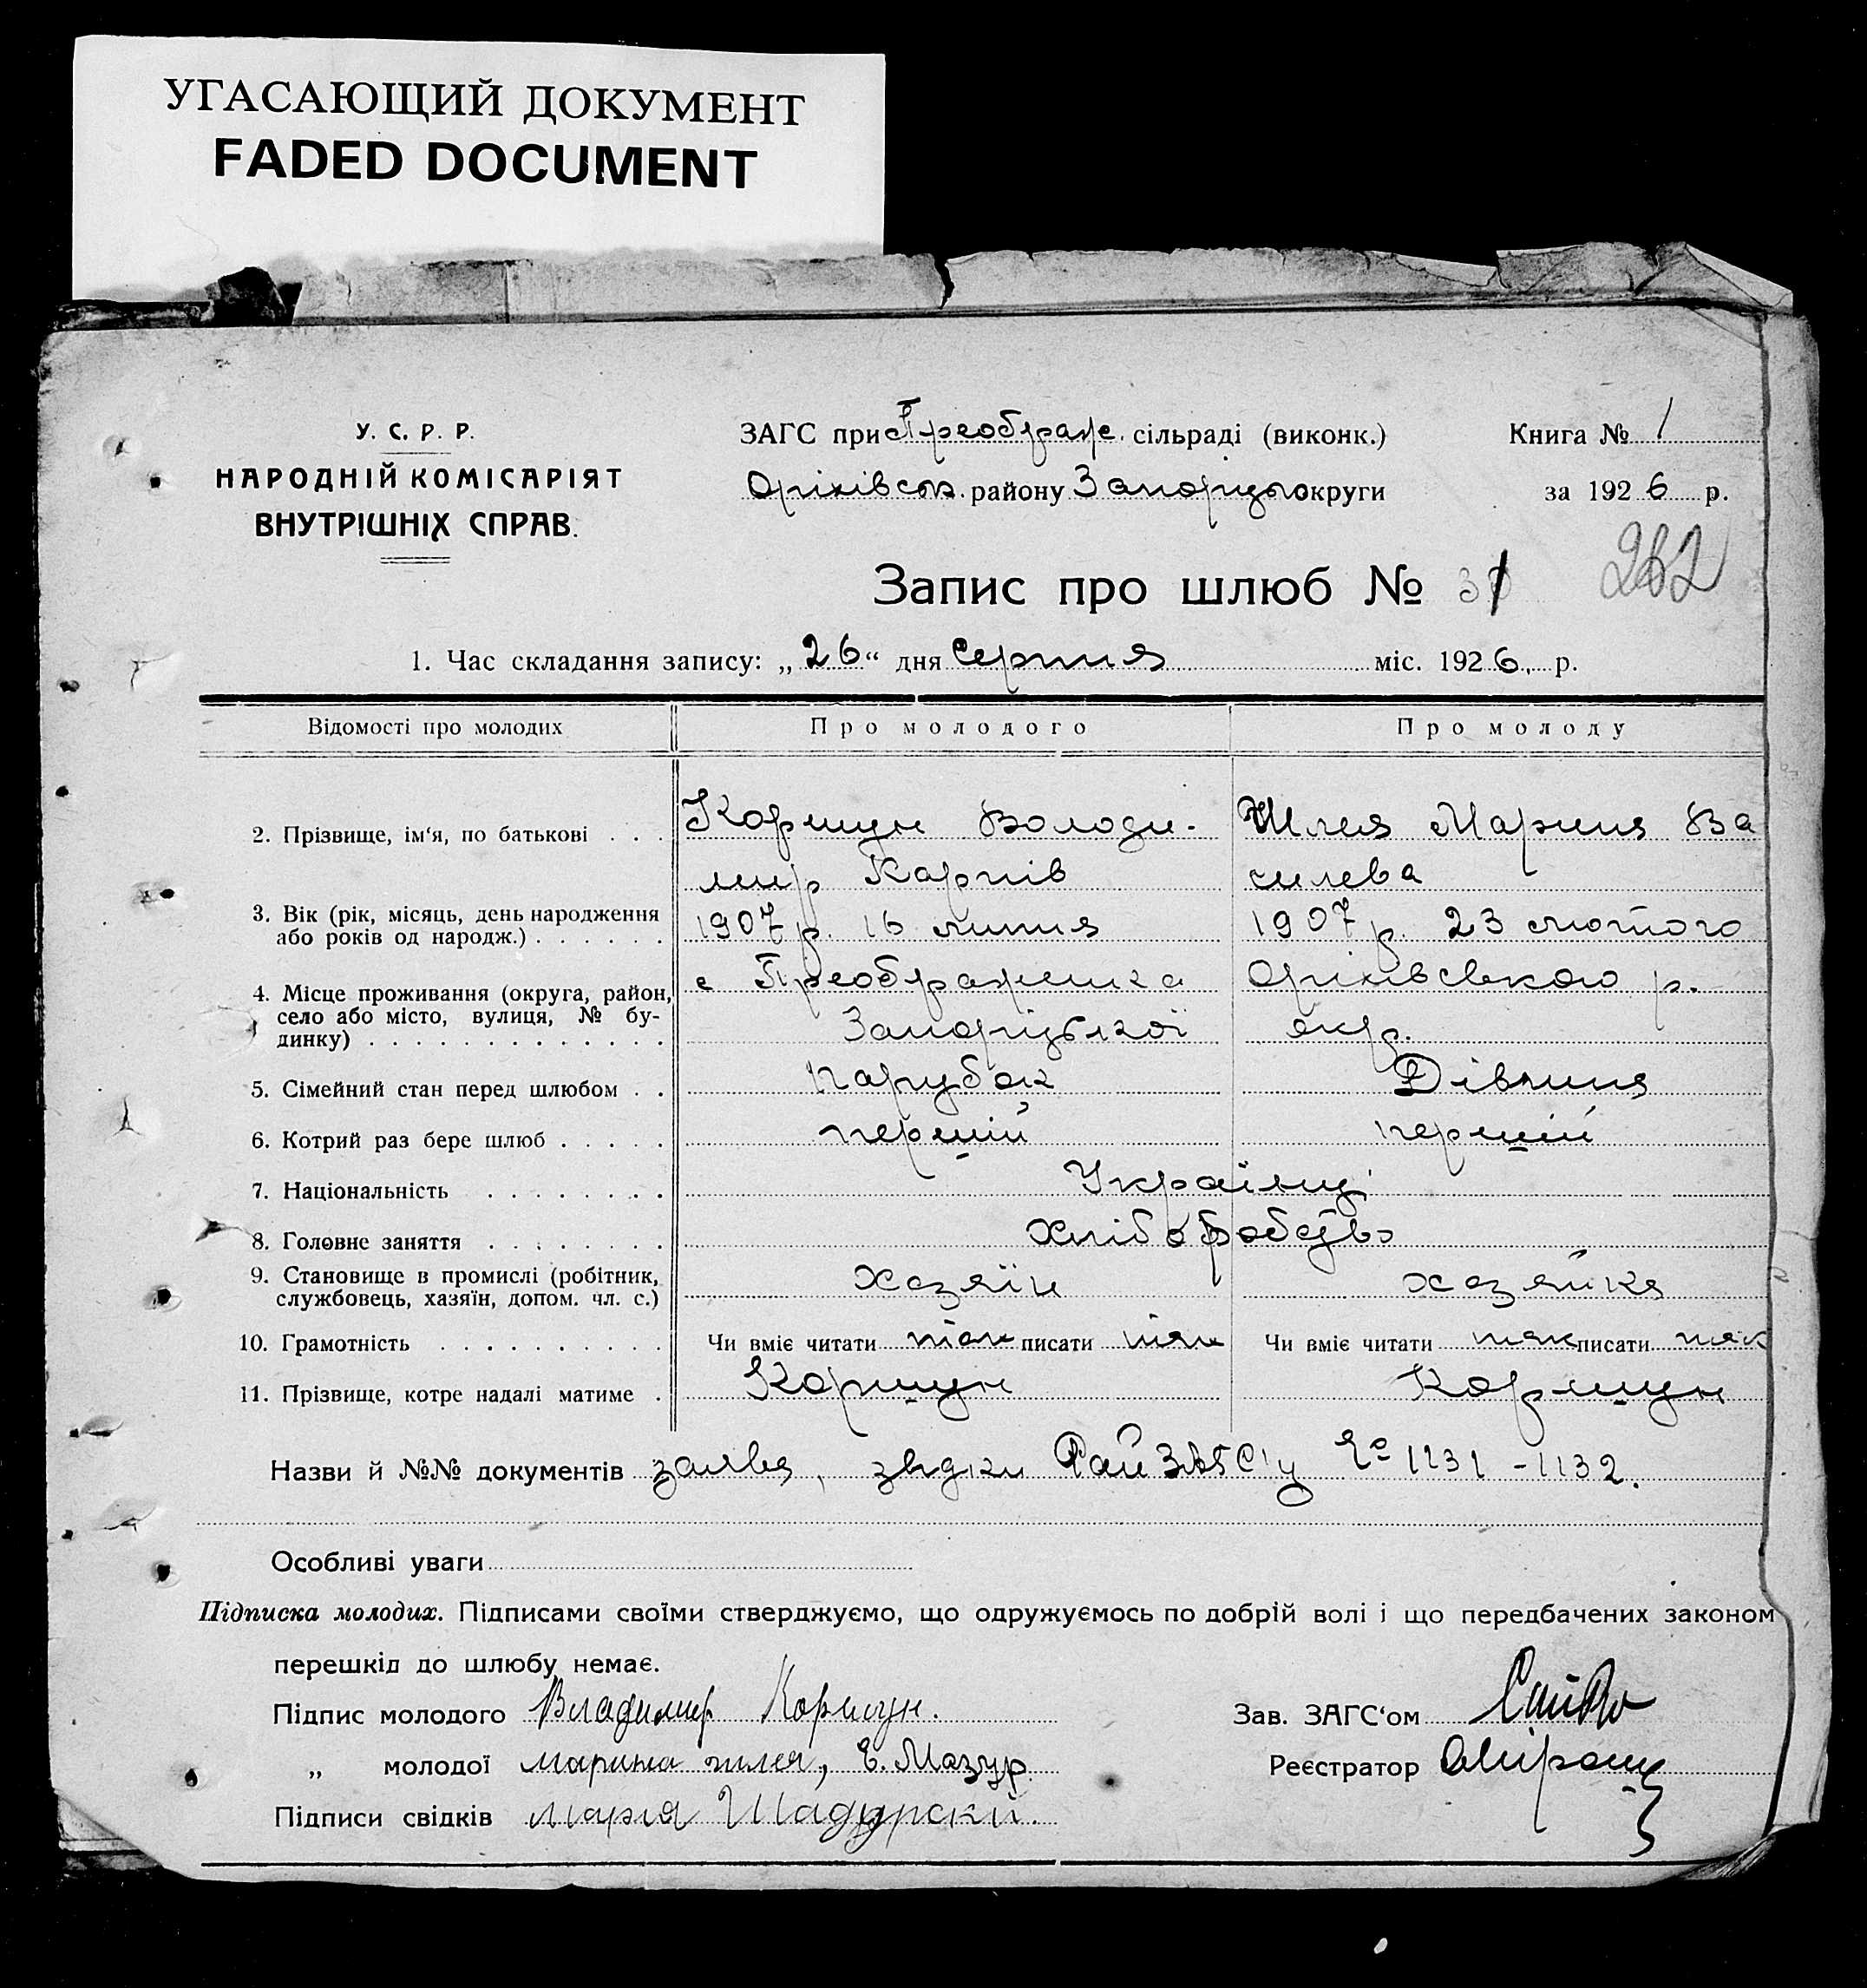 УГАСАЮЩИЙ ДОКУМЕНТ
FADED DOCUMENT
У. С. Р. Р.
НАРОДНІЙ КОМІСАРІЯТ
ВНУТРІШНІХ СПРАВ.
ЗАГС при Преображ. сільраді (виконк.)
Оріхівськ. району Запоріць округи
Книга № 1
за 1926 р.
Запис про шлюб № 31
262
1. Час складання запису: „26“ дня Серпня міс. 1926, р.
Відомості про молодих Про молодого Про молоду
2. Прізвище, ім‘я, по батькові . . . Коршун Володи- Шлея Марина Ва
мир Карпів силева
3. Вік (рік, місяць, день народження
або років од народж.) . . . . . . 1907 р. 16 липня 1907 р. 23 лютого
4. Місце проживання (округа, район, с Преображенка Оріхівського р.
село або місто, вулиця, № бу-
динку) . . . . . . . . . . . . . Запоріцької окр.
5. Сімейний стан перед шлюбом . . парубок Дівчина
6. Котрий раз бере шлюб . . . . . перший перший
7. Національність . . . . . . . . Українці
8. Головне заняття . . . . . . . Хліборобство
9. Становище в промислі (робітник,
службовець, хазяїн, допом. чл. с.) хазяїн хазяйка
10. Грамотність . . . . . . . . . . Чи вміє читати так писати так Чи вміє читати так писати так
11. Прізвище, котре надалі матиме . Коршун Коршун
Назви й №№ документів заява, звідки РайЗАГС'у № 1131 - 1132.
Особливі уваги
Підписка молодих. Підписами своїми стверджуємо, що одружуємось по добрій волі і що передбачених законом
перешкід до шлюбу немає.
Підпис молодого Владимир Коршун. Зав. ЗАГС‘ом
„ молодої марина шлея, Е. Мазур. Реєстратор
Підписи свідків Мария